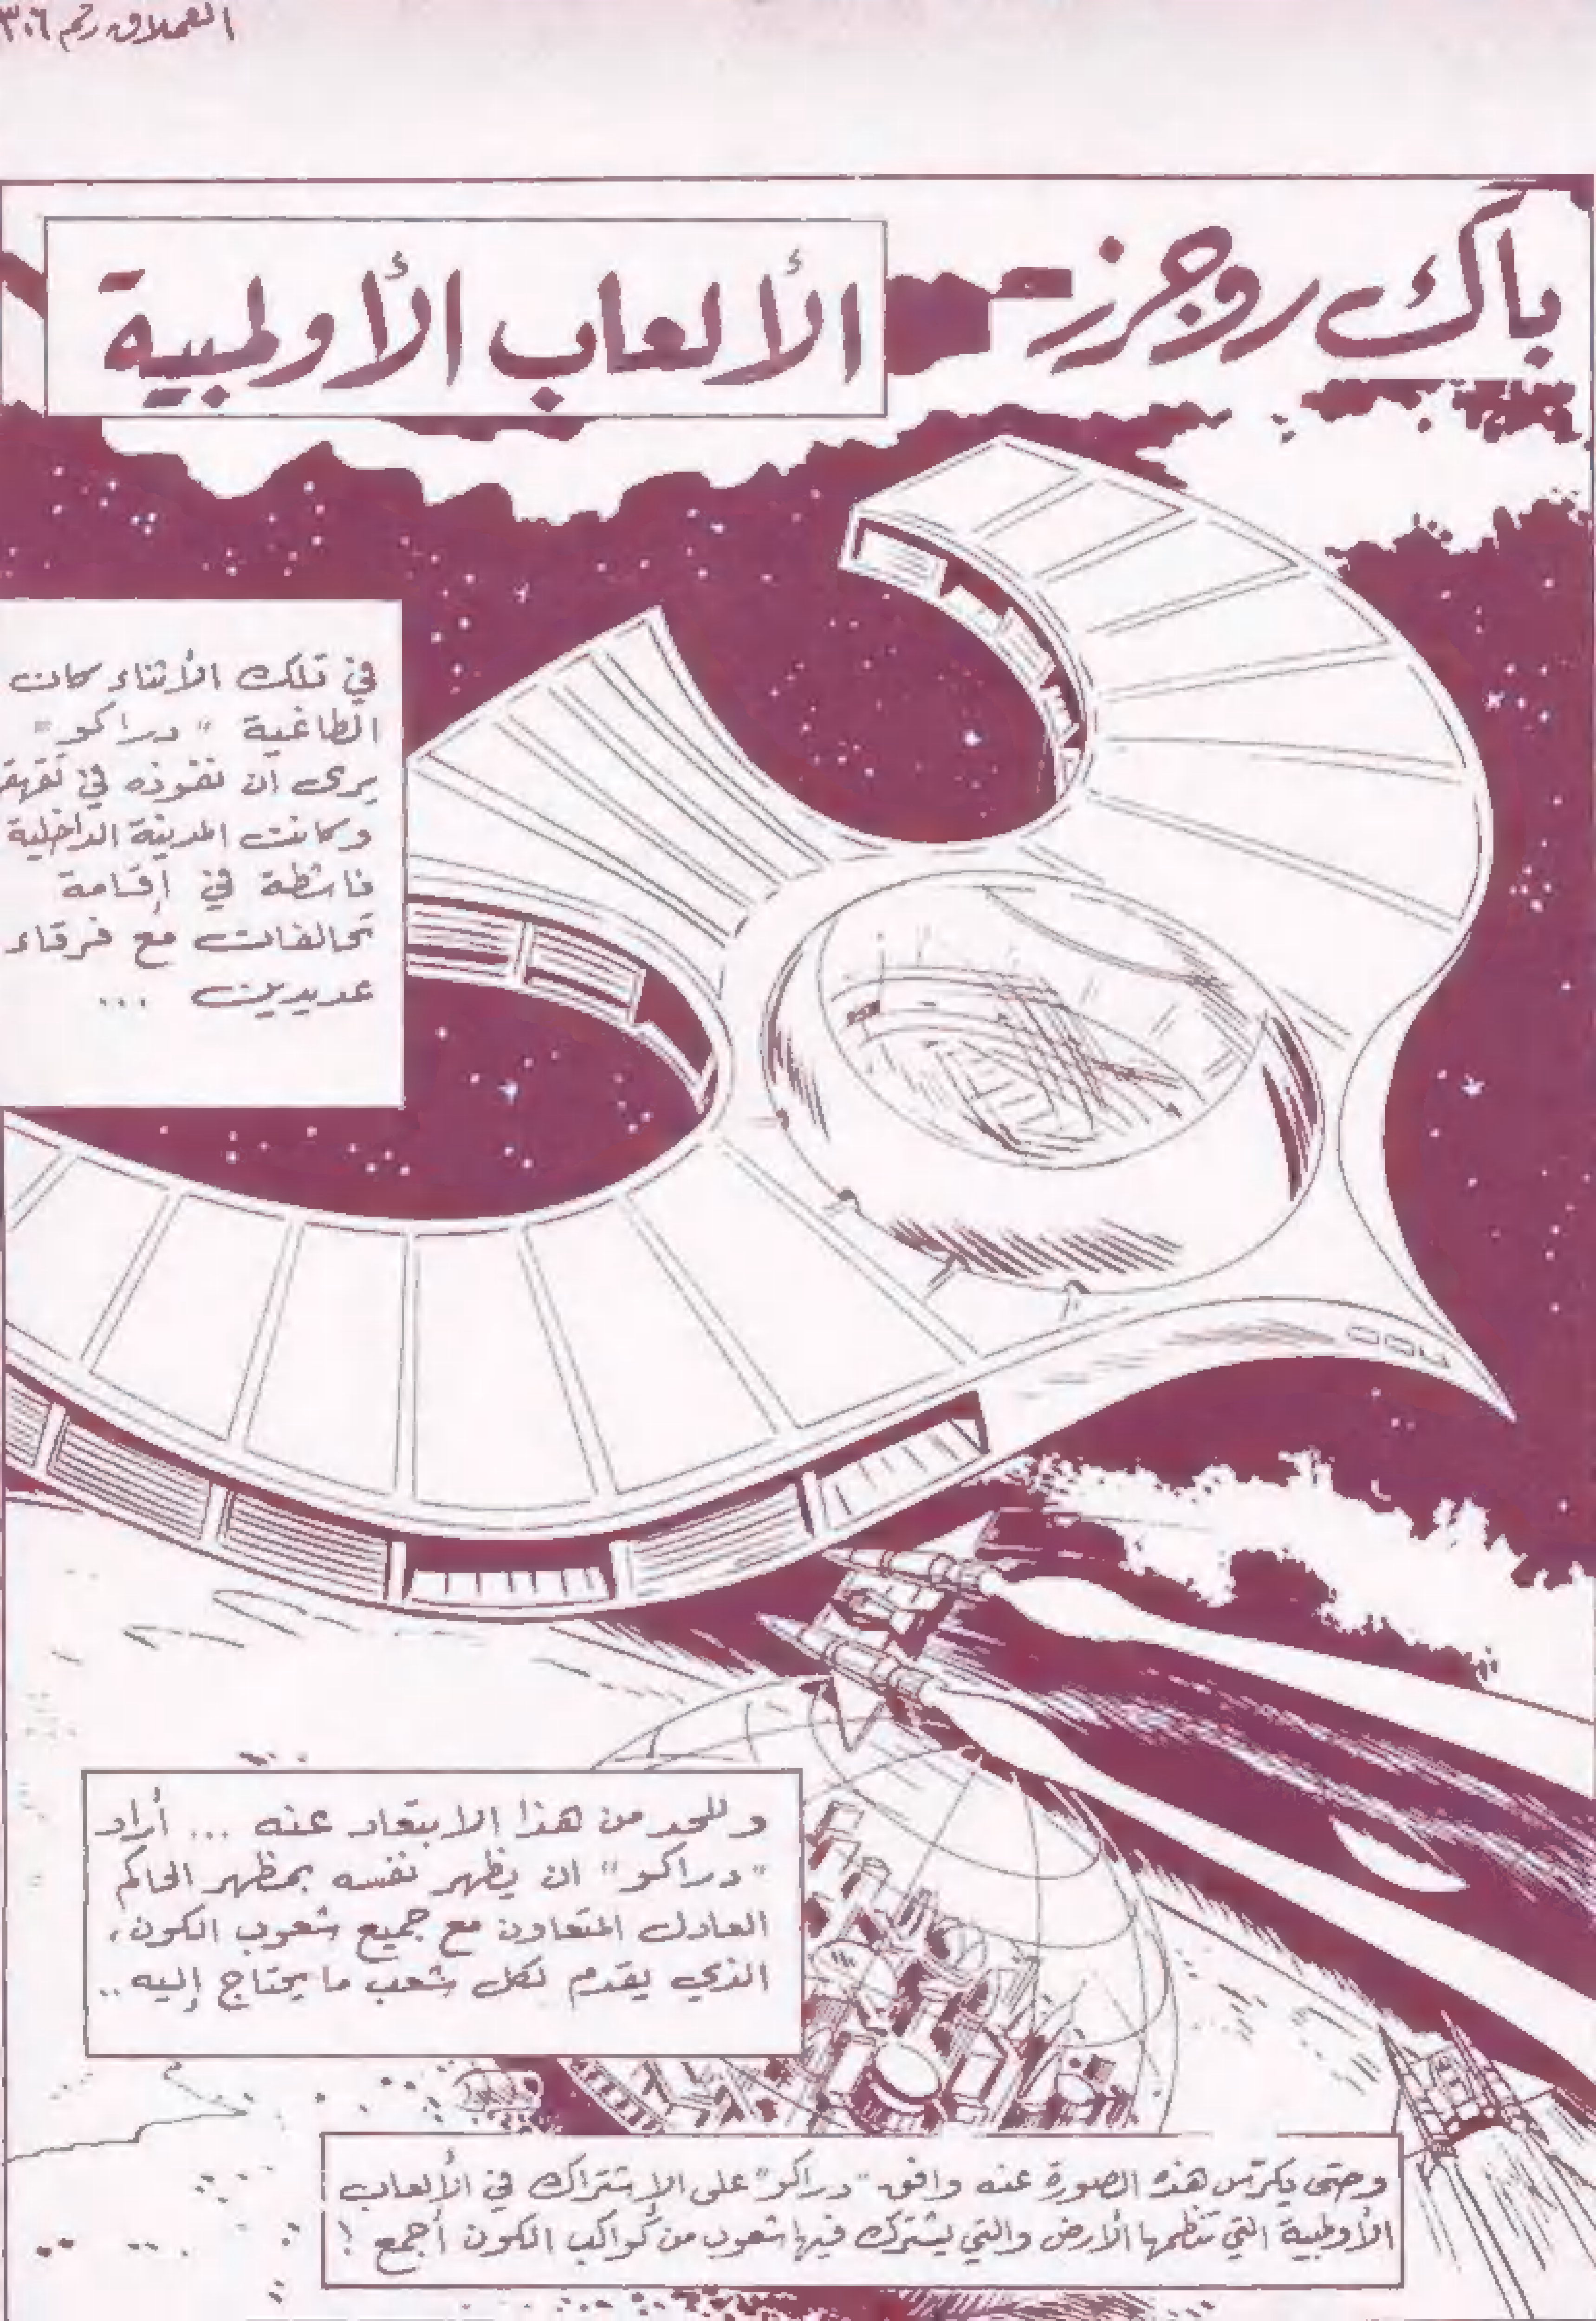 العملاق رقم ٣٠٦
باك روجرز
الألعاب الأولمبية
في تلك الأثناء كان
الطاغية "دراكو"
يرى ان نفوذه في تقهقر
وكانت المدينة الداخلية
ناشطة في إقامة
تحالفات مع فرقاء
عديدين ...
وللحد من هذا الابتعاد عنه ... أراد
"دراكو" ان يظهر نفسه بمظهر الحاكم
العادل المتعاون مع جميع شعوب الكون،
الذي يقدم لكل شعب ما يحتاج إليه ..
وحتى يكرّس هذه الصورة عنه وافق "دراكو" على الإشتراك في الألعاب
الأولمبية التي تنظمها الأرض والتي يشترك فيها شعوب من كواكب الكون أجمع !